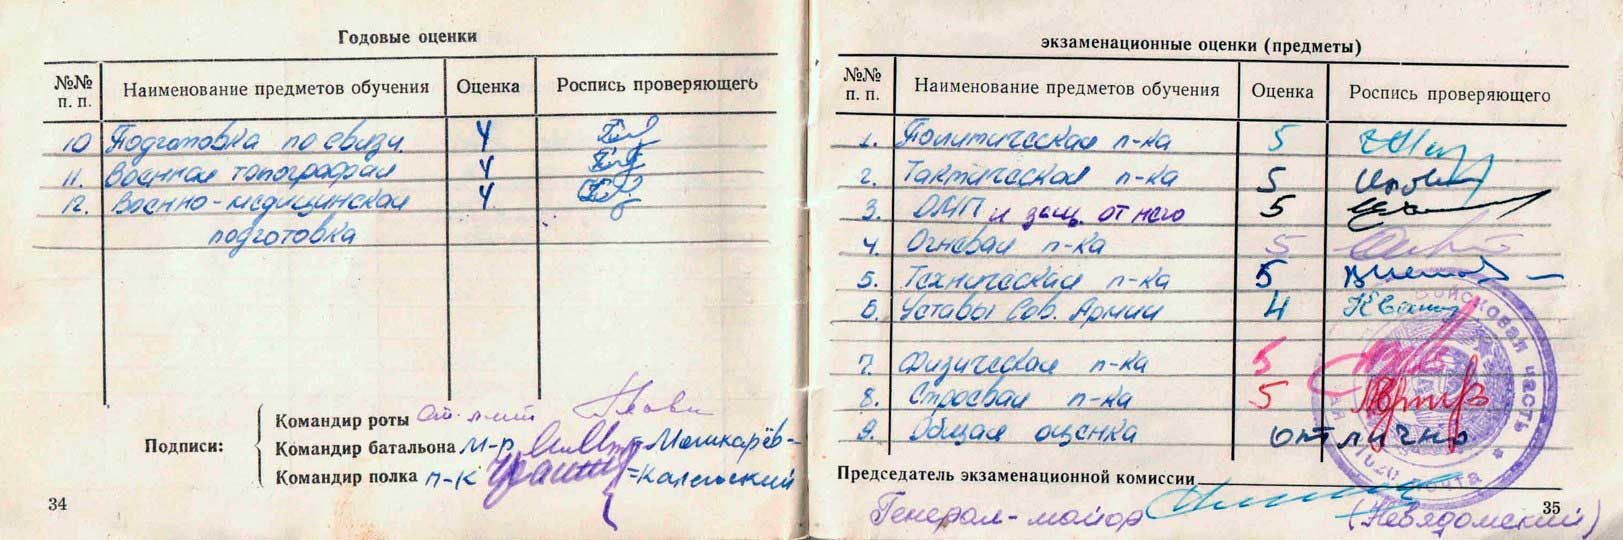 Годовые оценки
№№ п. п. Наименование предметов обучения Оценка Роспись проверяющего
10 Подготовка по связи 4
11. Военная топография 4
12. Военно-медицинская 4
подготовка
Подписи:
Командир роты ст. л-нт
Командир батальона м-р Мошкарёв-
Командир полка п-к
34
экзаменационные оценки (предметы)
№№ п. п. Наименование предметов обучения Оценка Роспись проверяющего
1. Политическая п-ка 5
2. Тактическая п-ка 5
3. ОМП и защ. от него 5
4. Огневая п-ка 5
5. Техническая п-ка 5
6. Уставы Сов. Армии 4
7. Физическая п-ка 5
8. Строевая п-ка 5
9. Общая оценка отлично
войсковая часть
полевая почта
Председатель экзаменационной комиссии
Генерал-майор (Невядомский)
35